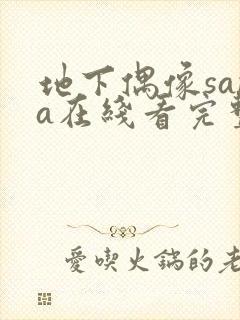 地下偶像sa
a在綫看完
愛喫火鍋的老